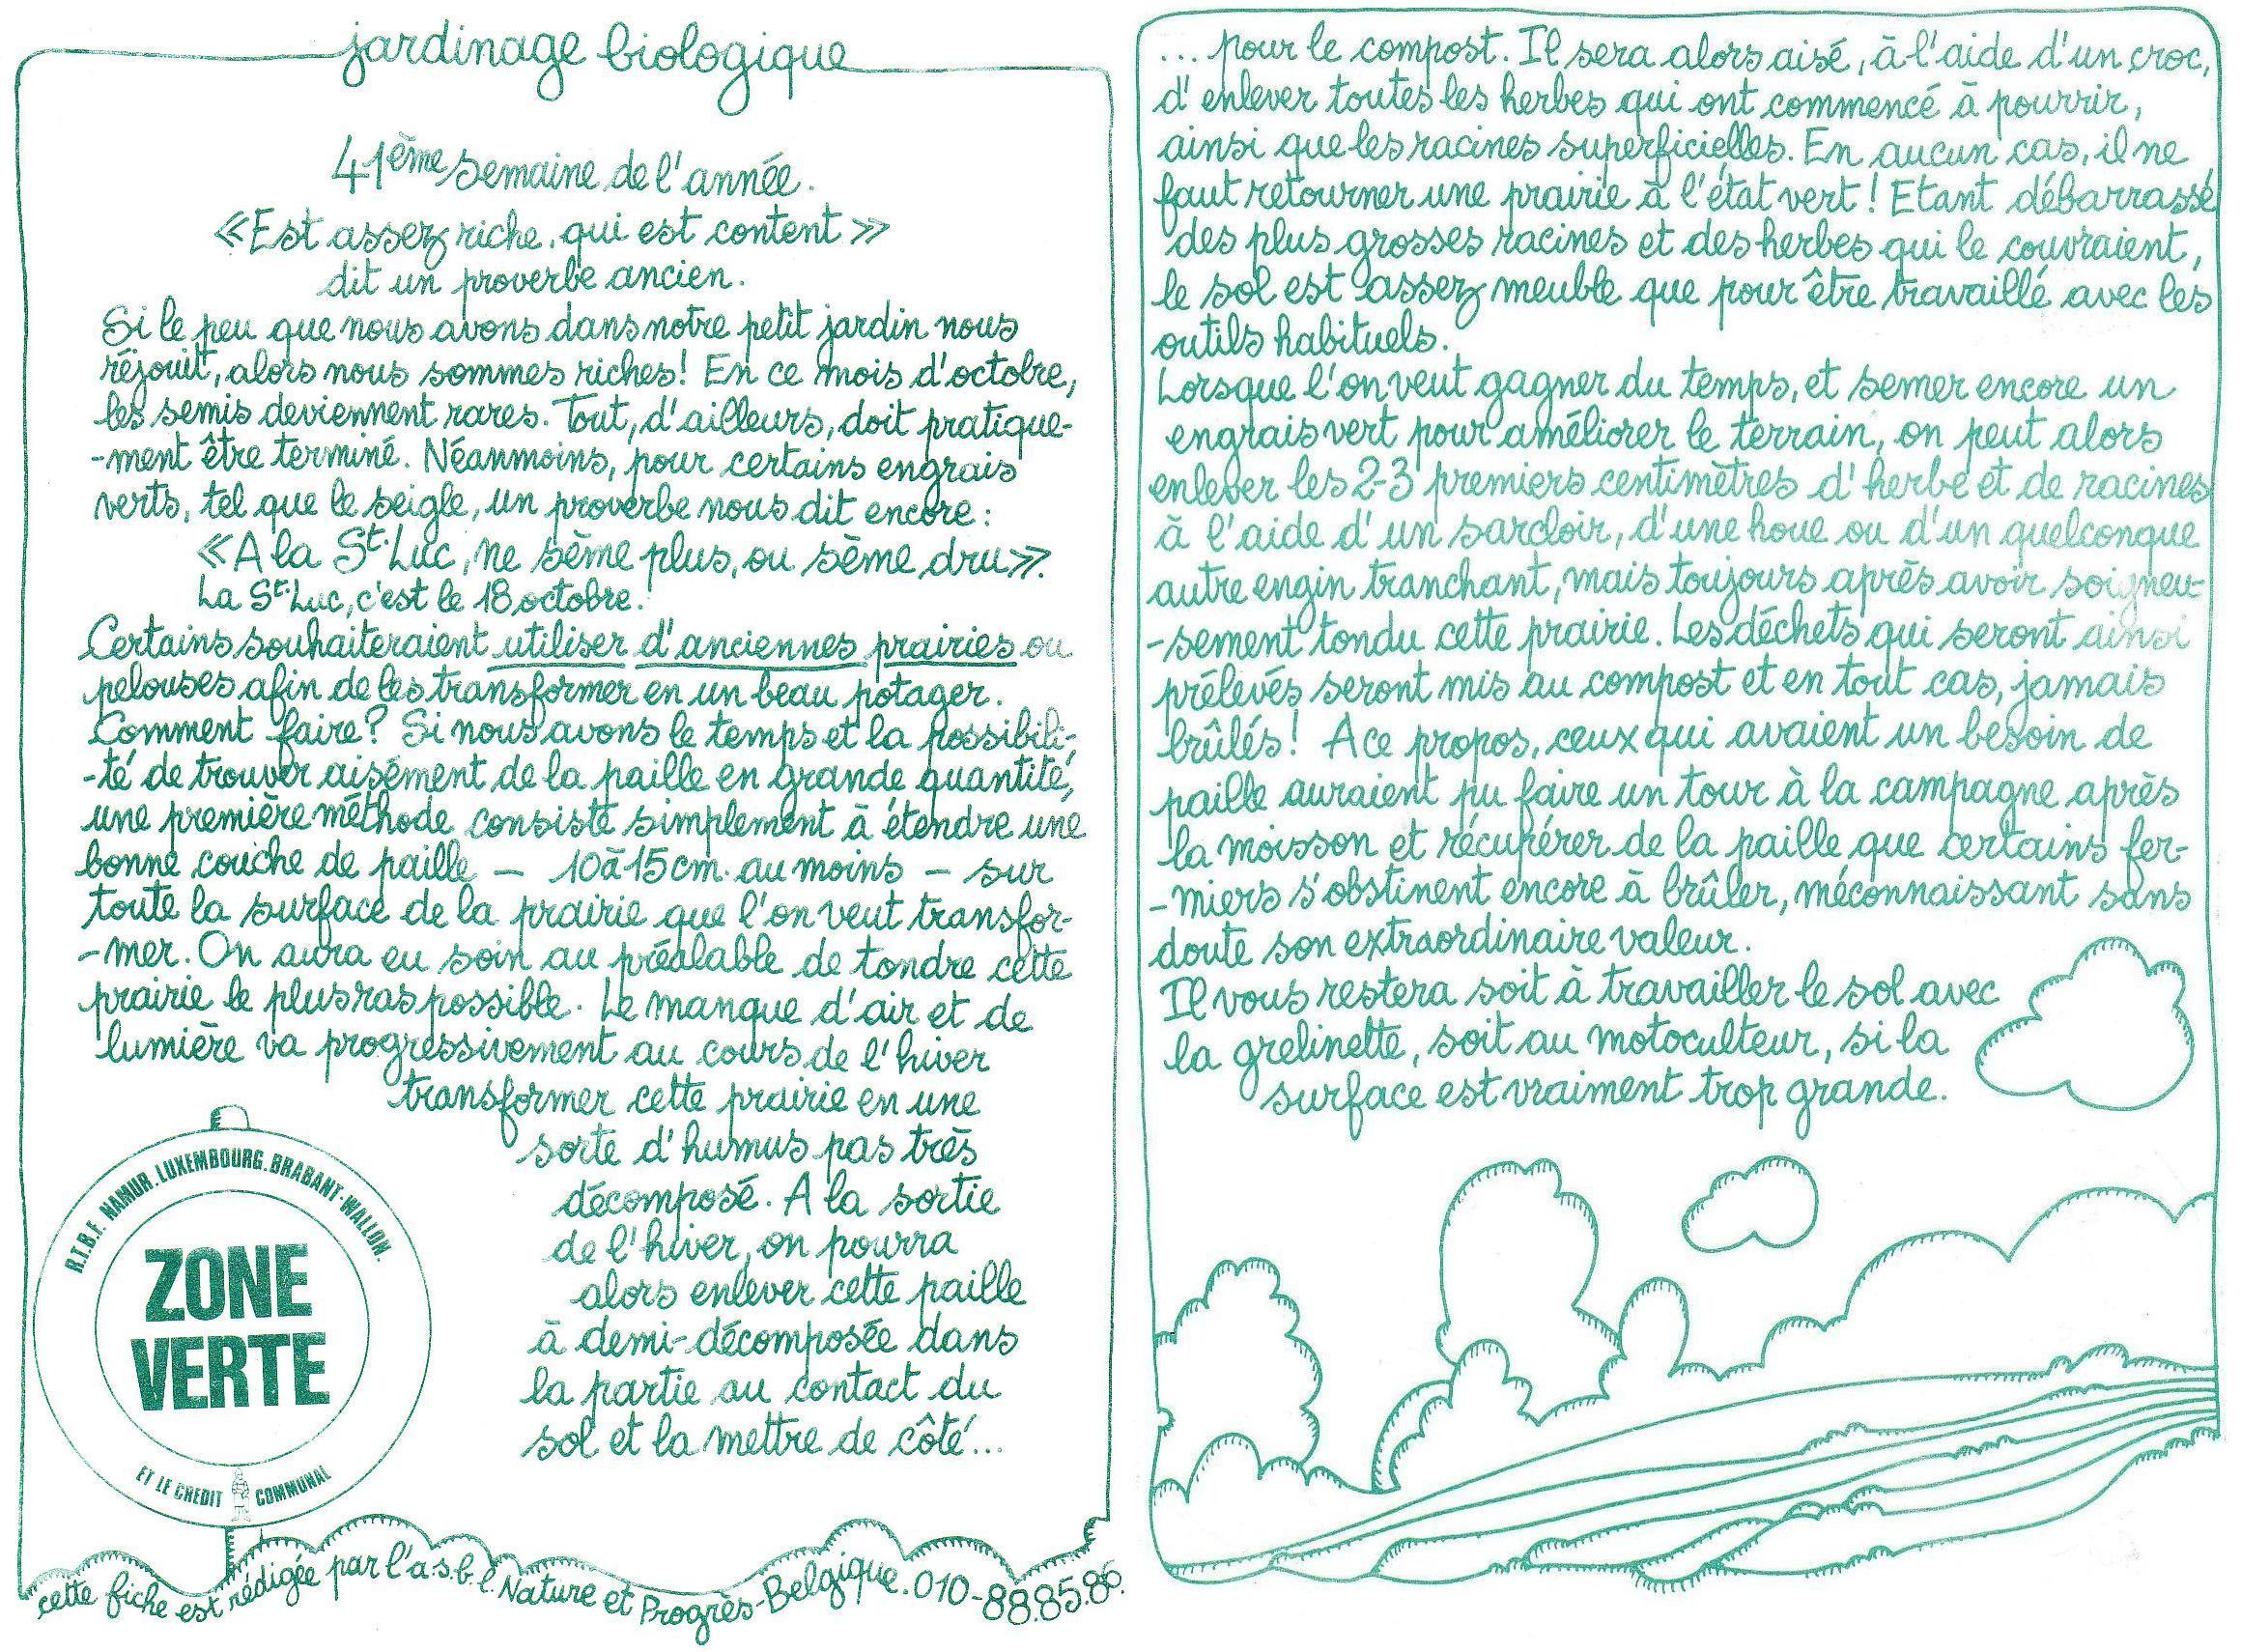 jardinage biologique
41ème semaine de l'année.
«Est assez riche, qui est content»
dit un proverbe ancien.
Si le peu que nous avons dans notre petit jardin nous
réjouit, alors nous sommes riches! En ce mois d'octobre,
les semis deviennent rares. Tout, d'ailleurs, doit pratique-
-ment être terminé. Néanmoins, pour certains engrais
verts, tel que le seigle, un proverbe nous dit encore:
«A la St.Luc, ne sème plus, ou sème dru».
La St.Luc, c'est le 18 octobre.
Certains souhaiteraient utiliser d'anciennes prairies ou
pelouses afin de les transformer en un beau potager.
Comment faire? Si nous avons le temps et la possibili-
-té de trouver aisément de la paille en grande quantité,
une première méthode consiste simplement à étendre une
bonne couche de paille — 10 à 15 cm. au moins — sur
toute la surface de la prairie que l'on veut transfor-
-mer. On aura eu soin au préalable de tondre cette
prairie le plus ras possible. Le manque d'air et de
lumière va progressivement au cours de l'hiver
transformer cette prairie en une
sorte d'humus pas très
décomposé. A la sortie
de l'hiver, on pourra
alors enlever cette paille
à demi-décomposée dans
la partie au contact du
sol et la mettre de côté...
R.T.B.F. NAMUR. LUXEMBOURG. BRABANT-WALLON.
ZONE
VERTE
ET LE CREDIT COMMUNAL
cette fiche est rédigée par l'a.s.b.l. Nature et Progrès-Belgique. 010-88.85.86.
... pour le compost. Il sera alors aisé, à l'aide d'un croc,
d'enlever toutes les herbes qui ont commencé à pourrir,
ainsi que les racines superficielles. En aucun cas, il ne
faut retourner une prairie à l'état vert! Etant débarrassé
des plus grosses racines et des herbes qui le couvraient,
le sol est assez meuble que pour être travaillé avec les
outils habituels.
Lorsque l'on veut gagner du temps, et semer encore un
engrais vert pour améliorer le terrain, on peut alors
enlever les 2-3 premiers centimètres d'herbe et de racines
à l'aide d'un sarcloir, d'une houe ou d'un quelconque
autre engin tranchant, mais toujours après avoir soigneu-
-sement tondu cette prairie. Les déchets qui seront ainsi
prélevés seront mis au compost et en tout cas, jamais
brûlés! A ce propos, ceux qui avaient un besoin de
paille auraient pu faire un tour à la campagne après
la moisson et récupérer de la paille que certains fer-
-miers s'obstinent encore à brûler, méconnaissant sans
doute son extraordinaire valeur.
Il vous restera soit à travailler le sol avec
la grelinette, soit au motoculteur, si la
surface est vraiment trop grande.